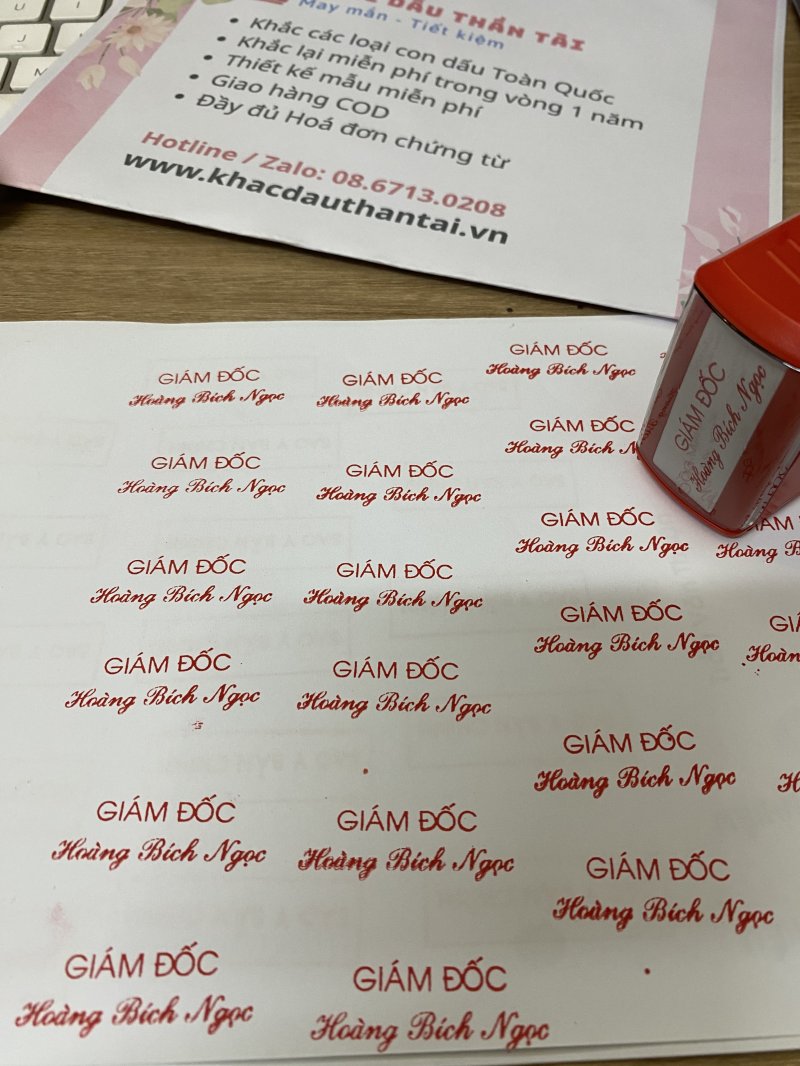 DẤU THẦN TÀI
May mắn - Tiết kiệm
• Khắc các loại con dấu Toàn Quốc
• Khắc lại miễn phí trong vòng 1 năm
• Thiết kế mẫu miễn phí
• Giao hàng COD
• Đầy đủ Hoá đơn chứng từ
Hotline / Zalo: 08.6713.0208
www.khacdauthantai.vn
GIÁM ĐỐC
Hoàng Bích Ngọc
GIÁM ĐỐC
Hoàng Bích Ngọc
GIÁM ĐỐC
Hoàng Bích Ngọc
GIÁM ĐỐC
Hoàng Bích Ngọc
GIÁM ĐỐC
Hoàng Bích N
GIÁM ĐỐC
Hoàng Bích Ngọc
GIÁM ĐỐC
Hoàng Bích Ngọc
GIÁM ĐỐC
Hoàng Bích Ngọc
Hoàng B
GIÁM ĐỐC
Hoàng Bích Ngọc
GIÁM ĐỐC
Hoàng Bích Ngọc
GIÁM ĐỐC
Hoàng Bích Ngọc
GIÁ
Hoàn
GIÁM ĐỐC
Hoàng Bích Ngọc
GIÁM ĐỐC
Hoàng Bích Ngọc
GIÁM ĐỐC
Hoàng Bích Ngọc
GIÁM ĐỐC
Hoàng Bích Ngọc
GIÁM ĐỐC
Hoàng Bích Ngọc
GIÁM ĐỐC
Hoàng Bích Ngọc
GIÁM ĐỐC
Hoàng Bích Ngọc
GIÁM ĐỐC
Hoàng Bích Ngọc